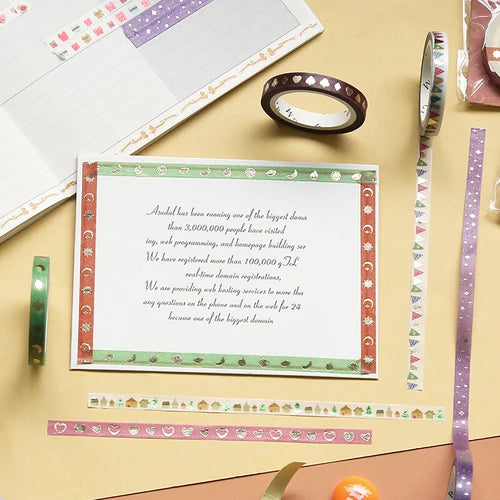 Asadal has been running one of the biggest doma
than 3,000,000 people have visited
ing, web programming, and homepage building ser
We have registered more than 100,000 gTL
real-time domain registrations,
We are providing web hosting services to more thu
any questions on the phone and on the web for 24
became one of the biggest domain